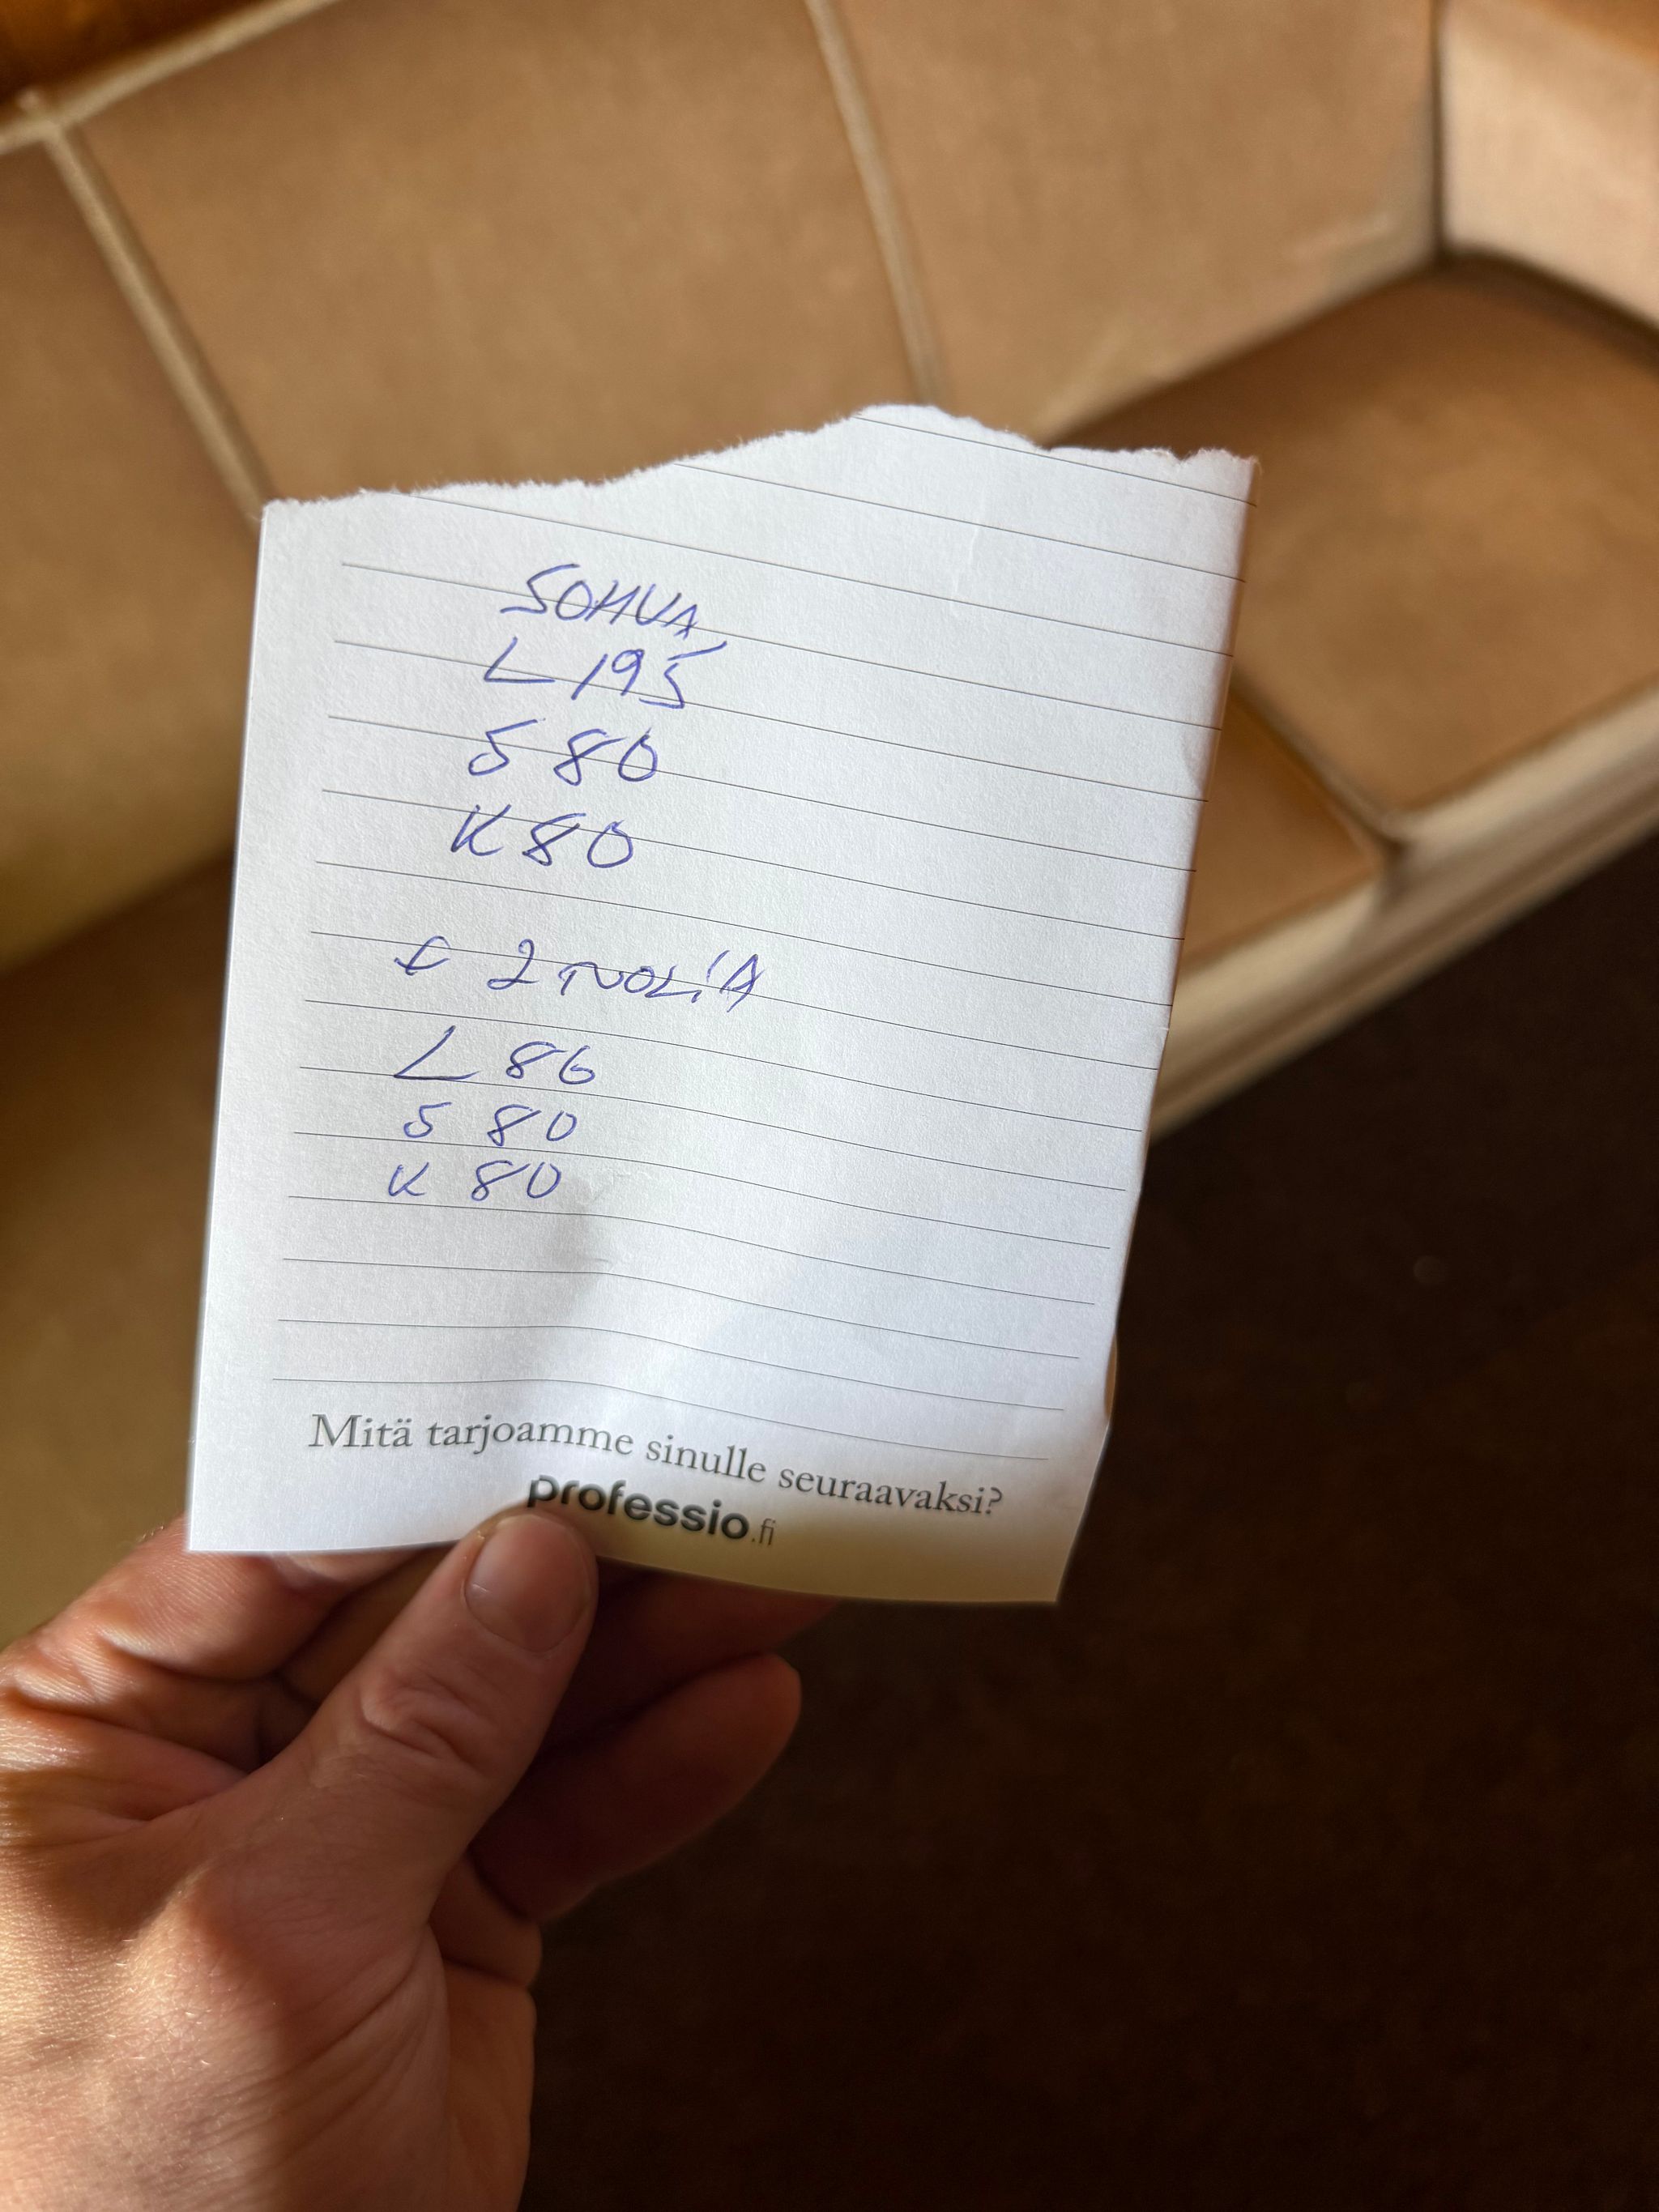 SOHVA
L 195
S 80
K 80
+ 2 TUOLIA
L 86
S 80
K 80
Mitä tarjoamme sinulle seuraavaksi?
professio.fi